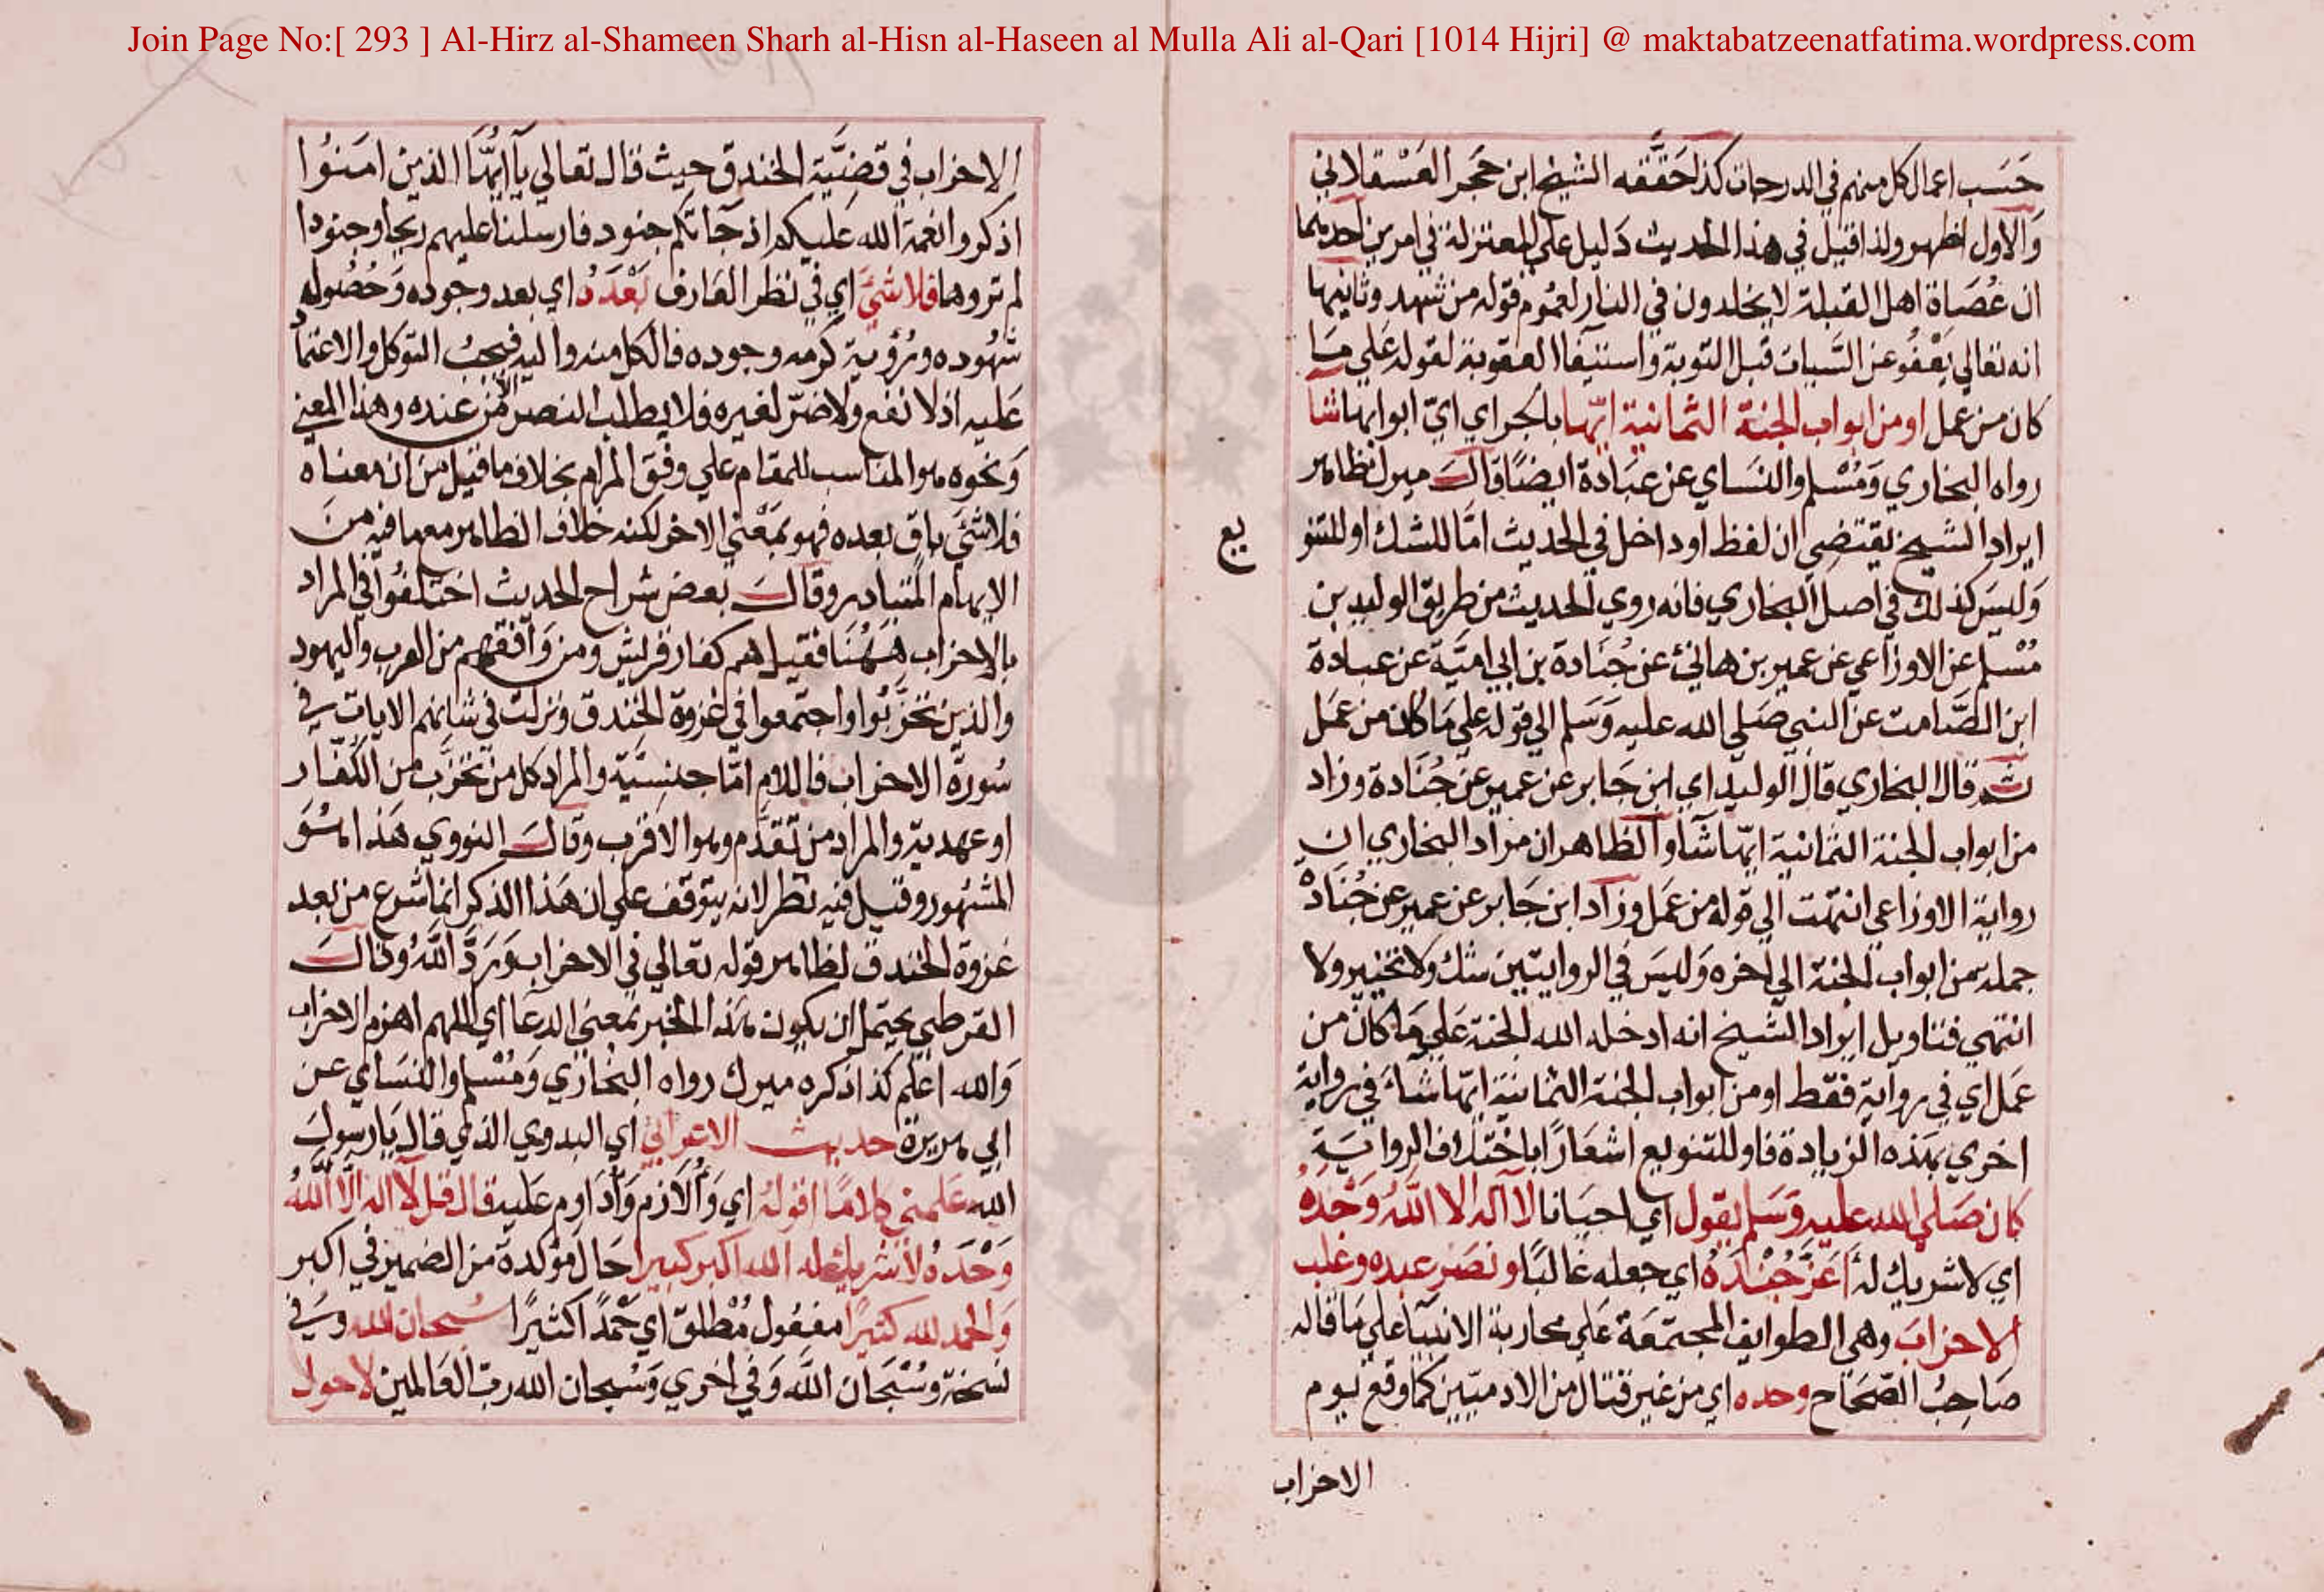 Join Page No:[ 293 ] Al-Hirz al-Shameen Sharh al-Hisn al-Haseen al Mulla Ali al-Qari [1014 Hijri] @ maktabatzeenatfatima.wordpress.com
حَسَب اعمال كل منهم في الدرجات كذا حَقَّقه الشيخ ابن حَجر العَسْقلاني
وَالاول اظهر ولذا قيل في هذا الحديث دَليل علي المعتزلة في امرين احدهما
ان عُصَاة اهل القبلة لا يخلدون في النار لعمُوم قوله من شهد وثانيها
انه تعالي يَعْفُو عن السَّيات قبل التوبة واستيفا العقوبة لقوله عَلي مَا
كان من عمل او من ابواب الجنة الثمانية ايّها بالجر اي ايّ ابوابها شا
رواه البخاري وَمُسْلم والنسَاي عن عبَادة ايضًا قال ميرك ظاهر
ايراد الشيخ يقتضي ان لفظ او داخل في الحديث امَّا للشك او للتنو
يع
وَليسَ كذلك في اصل البخاري فانه روي الحديث من طريق الوليد بن
مُسْلم عن الاوزاعي عن عمير بن هانئ عن جُنَادة بن ابي اميَّة عن عبادة
ابن الصَّامت عن النبي صَلي الله عليه وَسَلم الي قوله علي مَا كان من عَمَل
ثم قال البخاري قال الوليد اي ابن جَابر عن عمير عن جُنَادة وزاد
من ابواب الجنة الثمانية ايّها شآ والظاهر ان مراد البخاري ان
رواية الاوزاعي انتهت الي قوله من عَمَل وزاد ابن جَابر عن عمير عن جُنَادة
جملة من ابواب الجنة الي اخره وَليسَ في الروايتين شك ولا تخيير ولا
انتهي فتاويل ايراد الشيخ انه ادخله الله الجنة عَلي مَا كان من
عَمَل اي في رواية فقط او من ابواب الجنة الثمانية ايّها شآءَ في رواية
اخري بهذه الزيادة فاو للتنويع اشعَارًا باختلاف الرواية
كان صَلي الله عليه وَسَلم يقول اي احيَانا لا اله الا اللَّه وَحْدَهُ
اي لا شريك له اَعَزَّ جُنْدَهُ اي جعله غالبًا ونصَر عبده وغلب
الاحزابَ وهي الطوايف المجتمَعة عَلي محاربة الانبيَا علي مَا قاله
صَاحِبُ الصّحَاح وحده اي من غير قتال من الادميّين كما وقع يوم
الاحزاب
الاحزاب في قضيَّة الخندق حيث قال تعالي يآ ايهَّا الذين امَنوُا
اذكروا نعمة الله عَليكم اذ جآتكم جنود فارسلنا عليهم ريحا وجنودا
لم تروها فلا شئَ اي في نظر العَارف بَعْدَهُ اي بعد وجوده وَحُصُوله
شهُوده ورُؤية كرمه وجوده فالكل منه واليه فيجبُ التوكل والاعتماد
عَليه اذ لا نفع ولا ضرّ لغيره فلا يطلب النصر الا من عنده وهذا المعني
وَنحوه هو المناسب للمقام علي وفق المرام بخلاف ما قيل من ان معناه
فلا شئَ باق بعده فهو بمَعْني الاخر لكنه خلاف الظاهر مع ما فيه من
الايهام المتبادر وقال بعض شراح الحديث اختلفُوا في المراد
بالاحزاب هَهُنَا فقيل هم كفار قريش ومن وَافقهم من العرب واليهود
والذين تحزَّبُوا واجتمعوا في غزوة الخندق ونزلت في شانهم الايات في
سُورة الاحزاب فاللام امّا جنسيَّة والمراد كل من تحزَّب من الكفار
او عهدية والمراد من تقدَّم وهو الاقرب وقال النووي هَذا هُوَ
المشهور وقيل فيه نظر لانه يتوقف علي ان هَذا الذكر انما شرع من بعد
غزوة الخندق لظاهر قوله تعالي في الاحزاب وَرَدَّ اللَّهُ وقال
القرطبي يحتمل ان يكون هذا الخبر بمعني الدعَا اي اللهم اهزم الاحزاب
وَالله اعلم كذا ذكره ميرك رواه البخاري وَمُسْلم والنسَاي عن
ابي هريرة حديث الاعرابي اي البدوي الذي قال يَا رسول
الله عَلمني كلامًا اقولهُ اي وَأُلاَزم وَأُدَاوم عَليه قال قل لآ اله الاَّ اللَّهُ
وَحْدَهُ لا شريك له الله اكبر كبيرا حَال مؤكدة من الضمير في اكبر
وَالحمد لله كثيرًا مفعُول مُطلق اي حَمْدًا كثيرًا سُبحان الله وَفي
نسخة وسُبْحَان اللَّه وَفي اخري وَسُبحان الله ربّ العَالمين لا حول